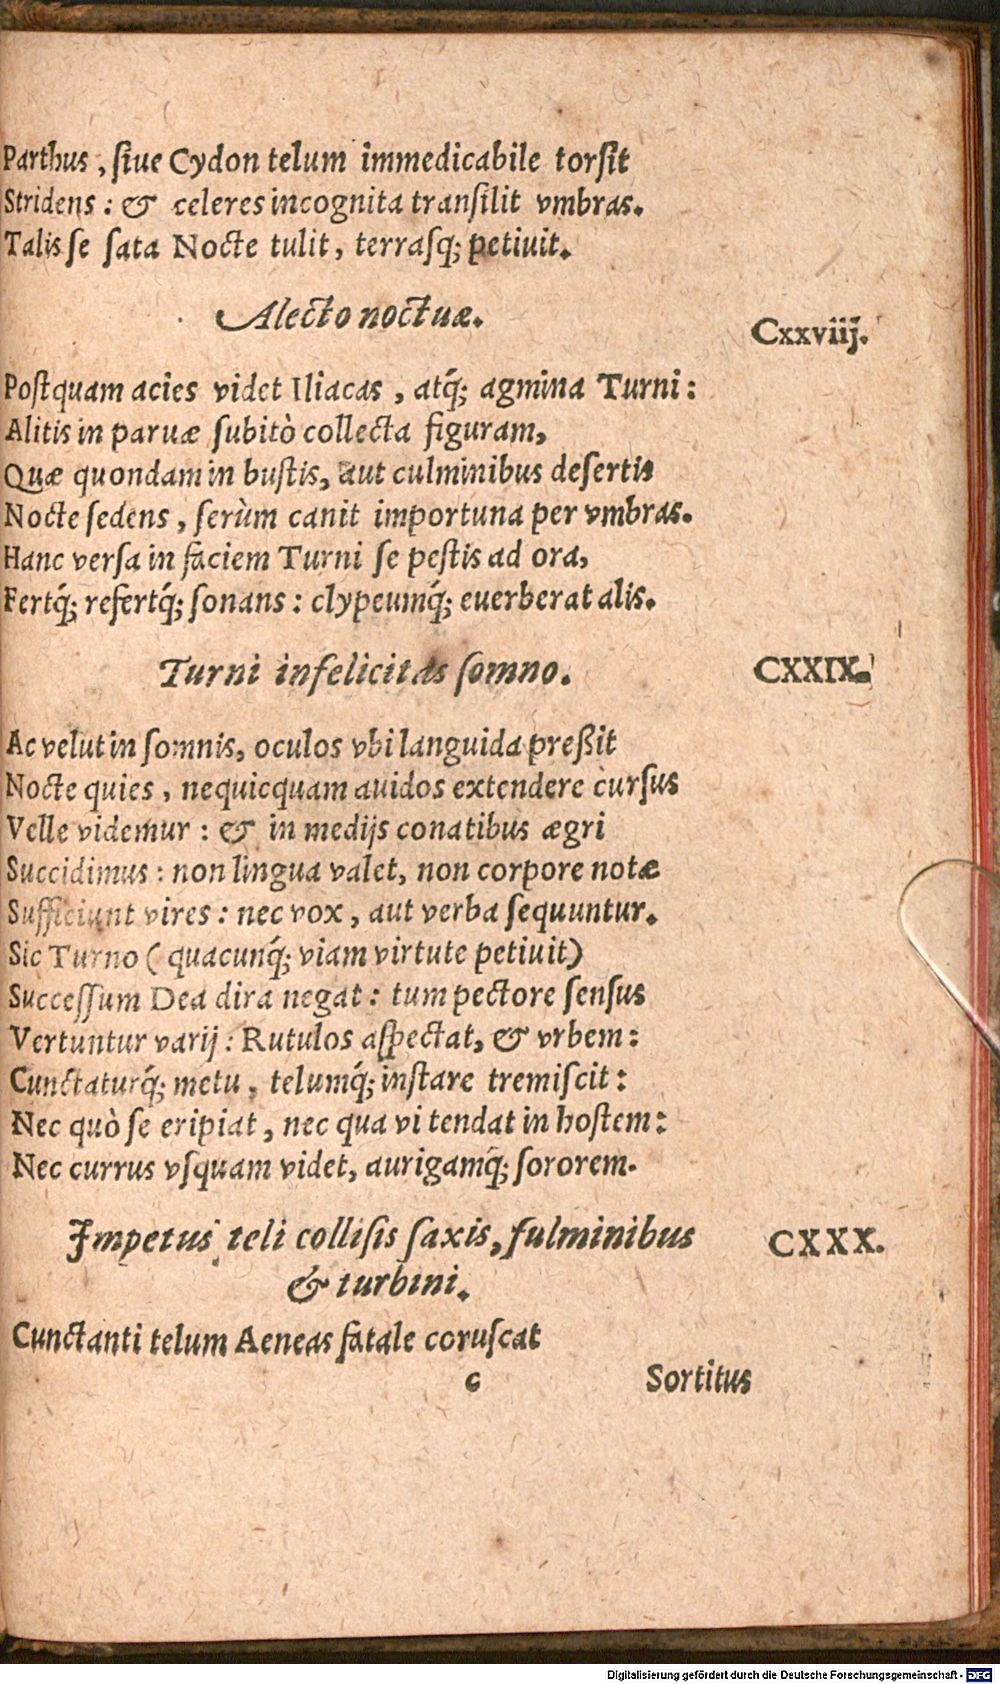 Parthus, ſiue Cydon telum immedicabile torſit
Stridens: & celeres incognita tranſilit vmbras.
Talis se ſata Nocte tulit, terraſq; petiuit.
Alecto noctuæ.
Cxxviij.
Poſtquam acies videt Iliacas, atq́; agmina Turni:
Alitis in paruæ ſubitò collecta figuram,
Quæ quondam in buſtis, aut culminibus deſertis
Nocte ſedens, ſerùm canit importuna per vmbras.
Hanc verſa in faciem Turni ſe peſtis ad ora,
Fertq́; refertq́; ſonans: clypeumq́; euerberat alis.
Turni infelicitas ſomno.
CXXIX.
Ac velut in ſomnis, oculos vbi languida preßit
Nocte quies, nequicquam auidos extendere cursus
Velle videmur: & in medijs conatibus ægri
Succidimus: non lingua valet, non corpore notæ
Sufficiunt vires: nec vox, aut verba ſequuntur.
Sic Turno (quacunq́; viam virtute petiuit)
Succeſſum Dea dira negat: tum pectore ſensus
Vertuntur varij: Rutulos aſpectat, & vrbem:
Cunctaturq́; metu, telumq́; inſtare tremiſcit:
Nec quò ſe eripiat, nec qua vi tendat in hoſtem:
Nec currus vſquam videt, aurigamq́; ſororem.
Impetus teli colliſis ſaxis, fulminibus
CXXX.
& turbini.
Cunctanti telum Aeneas fatale coruſcat
c
Sortitus
Digitalisierung gefördert durch die Deutsche Forschungsgemeinschaft - DFG